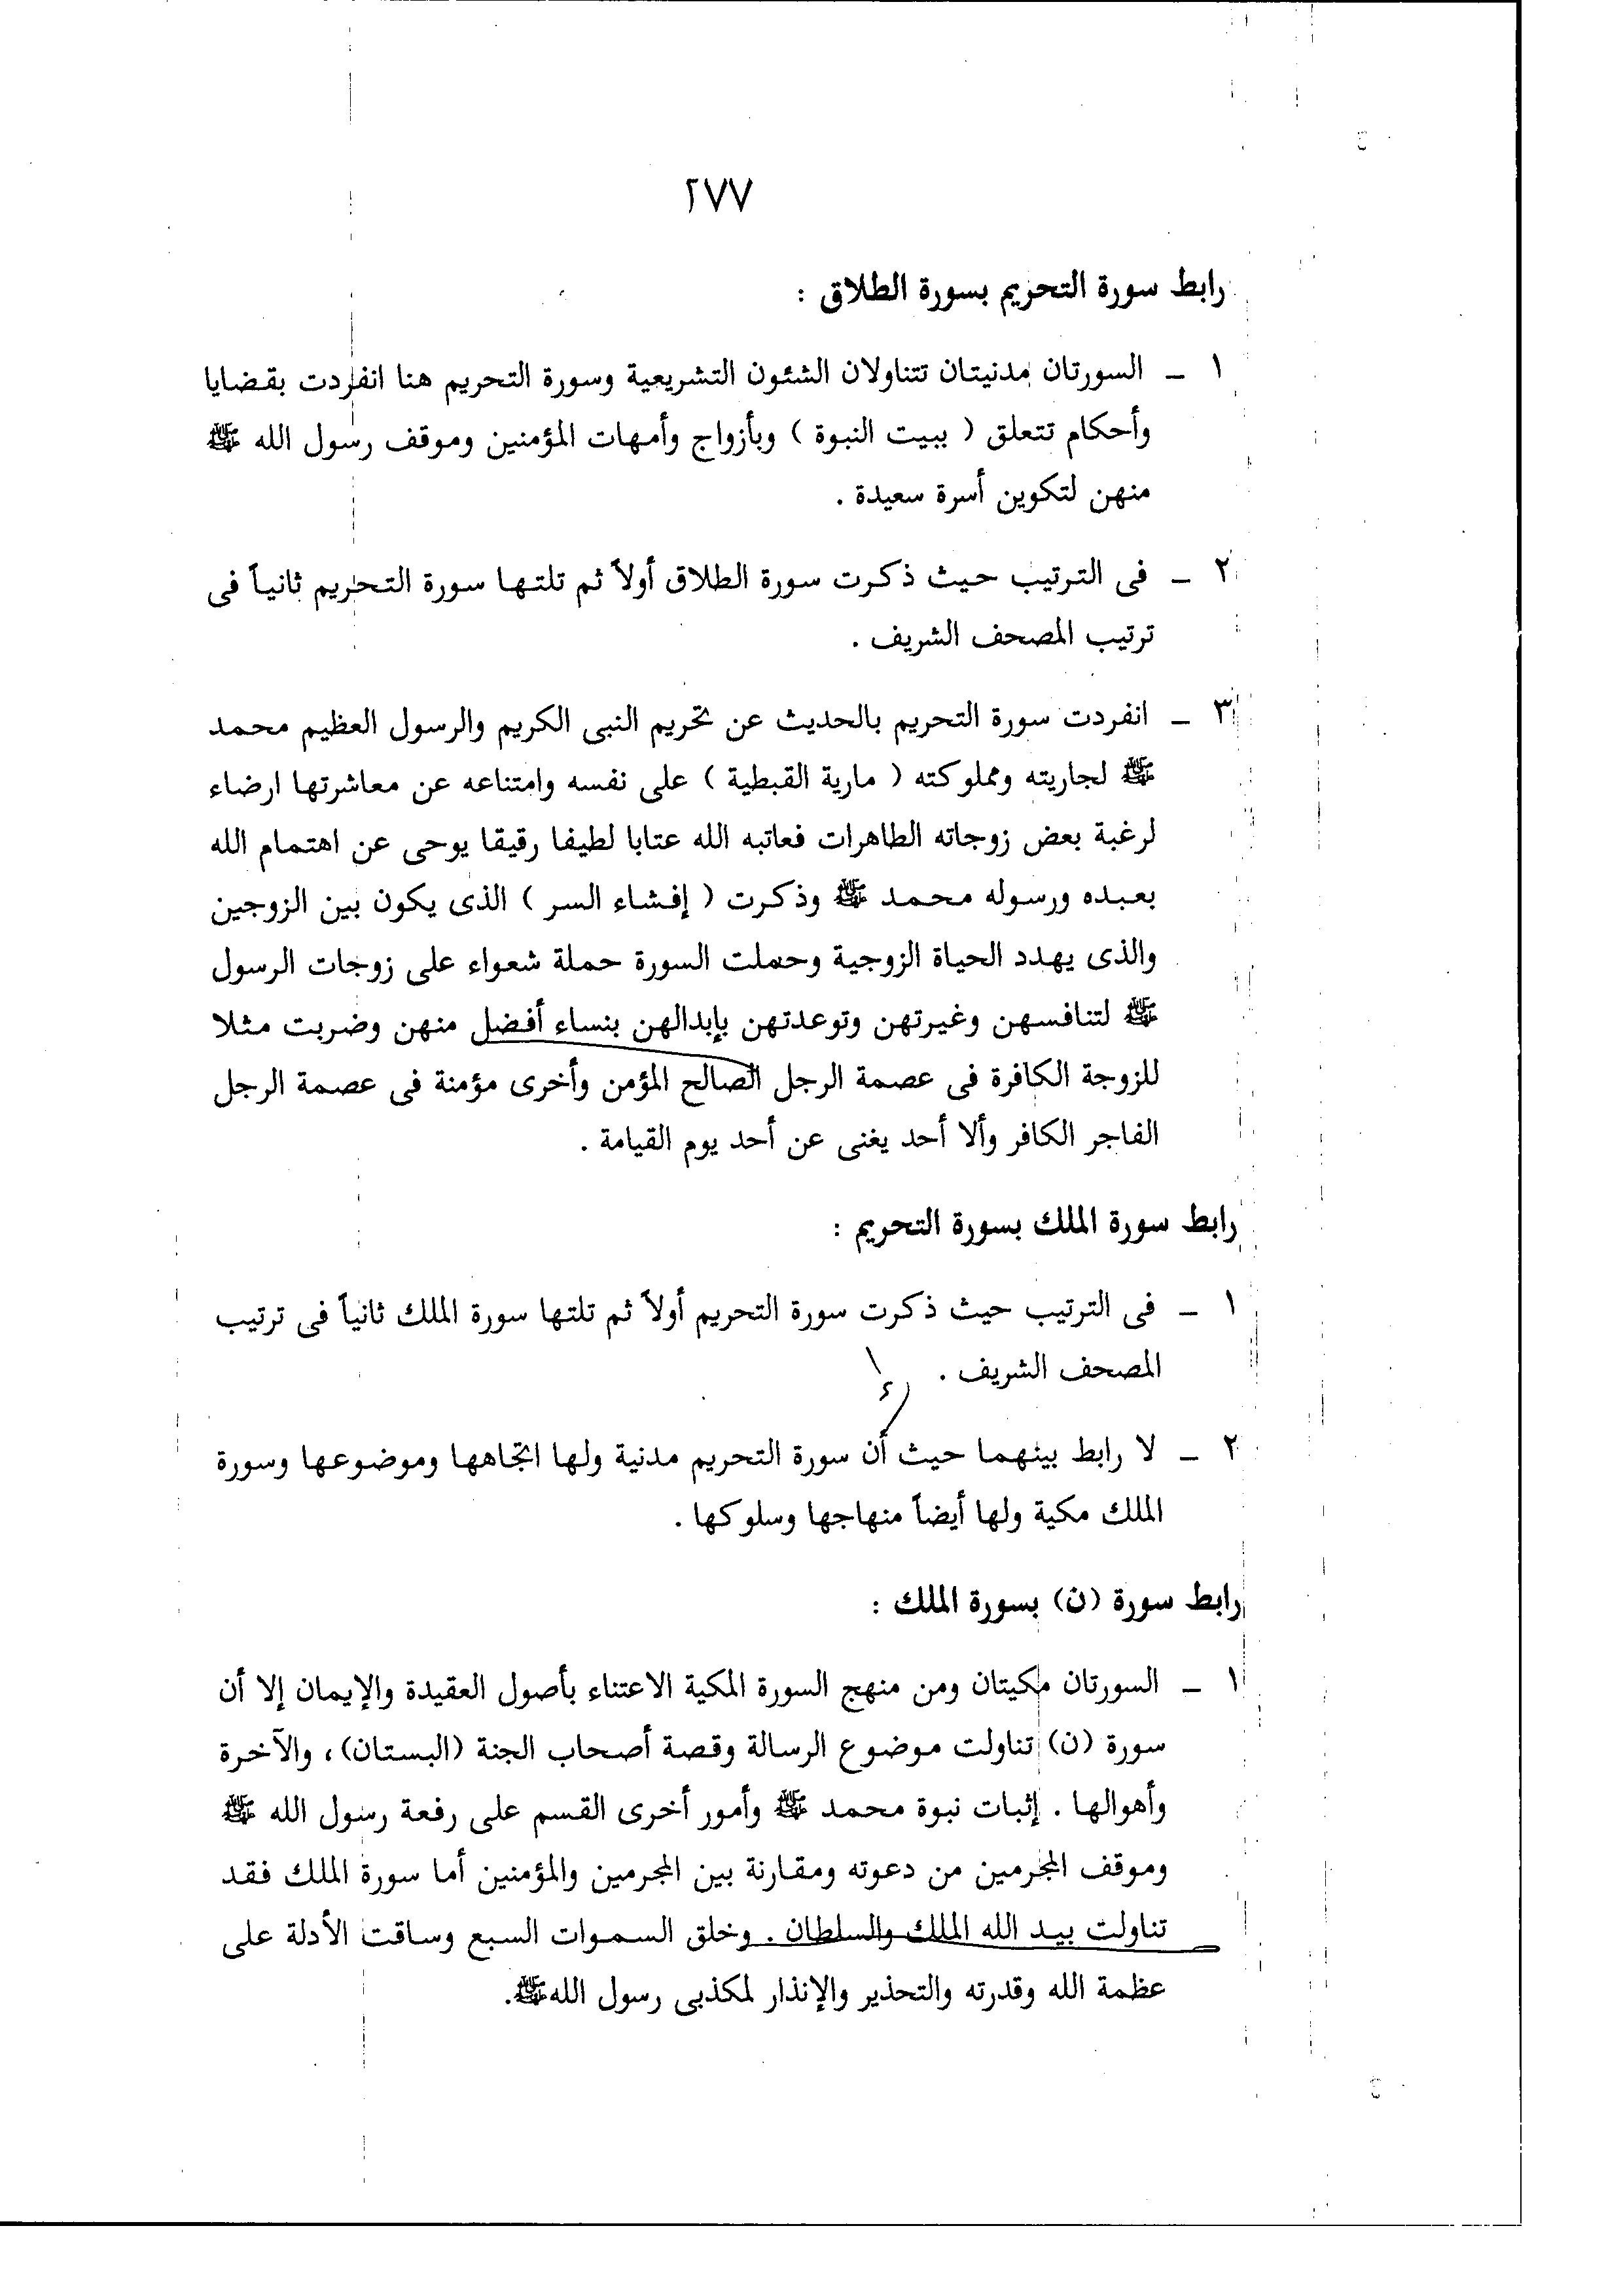 ٢٧٧
رابط سورة التحريم بسورة الطلاق :
١ ــ السورتان مدنيتان تتناولان الشئون التشريعية وسورة التحريم هنا انفردت بقضايا
وأحكام تتعلق ( ببيت النبوة ) وبأزواج وأمهات المؤمنين وموقف رسول الله ﷺ
منهن لتكوين أسرة سعيدة .
٢ ــ فى الترتيب حيث ذكرت سورة الطلاق أولاً ثم تلتها سورة التحريم ثانياً فى
ترتيب المصحف الشريف .
٣ ــ انفردت سورة التحريم بالحديث عن تحريم النبى الكريم والرسول العظيم محمد
ﷺ لجاريته ومملوكته ( مارية القبطية ) على نفسه وامتناعه عن معاشرتها ارضاء
لرغبة بعض زوجاته الطاهرات فعاتبه الله عتابا لطيفا رقيقا يوحى عن اهتمام الله
بعبده ورسوله محمد ﷺ وذكرت ( إفشاء السر ) الذى يكون بين الزوجين
والذى يهدد الحياة الزوجية وحملت السورة حملة شعواء على زوجات الرسول
ﷺ لتنافسهن وغيرتهن وتوعدتهن بإبدالهن بنساء أفضل منهن وضربت مثلا
للزوجة الكافرة فى عصمة الرجل الصالح المؤمن وأخرى مؤمنة فى عصمة الرجل
الفاجر الكافر وألا أحد يغنى عن أحد يوم القيامة .
رابط سورة الملك بسورة التحريم :
١ ــ فى الترتيب حيث ذكرت سورة التحريم أولاً ثم تلتها سورة الملك ثانياً فى ترتيب
المصحف الشريف .
٢ ــ لا رابط بينهما حيث أن سورة التحريم مدنية ولها اتجاهها وموضوعها وسورة
الملك مكية ولها أيضاً منهاجها وسلوكها .
رابط سورة (ن) بسورة الملك :
١ ــ السورتان مكيتان ومن منهج السورة المكية الاعتناء بأصول العقيدة والإيمان إلا أن
سورة (ن) تناولت موضوع الرسالة وقصة أصحاب الجنة (البستان)، والآخرة
وأهوالها . إثبات نبوة محمد ﷺ وأمور أخرى القسم على رفعة رسول الله ﷺ
وموقف المجرمين من دعوته ومقارنة بين المجرمين والمؤمنين أما سورة الملك فقد
تناولت بيد الله الملك والسلطان . وخلق السموات السبع وساقت الأدلة على
عظمة الله وقدرته والتحذير والإنذار لمكذبى رسول الله ﷺ.